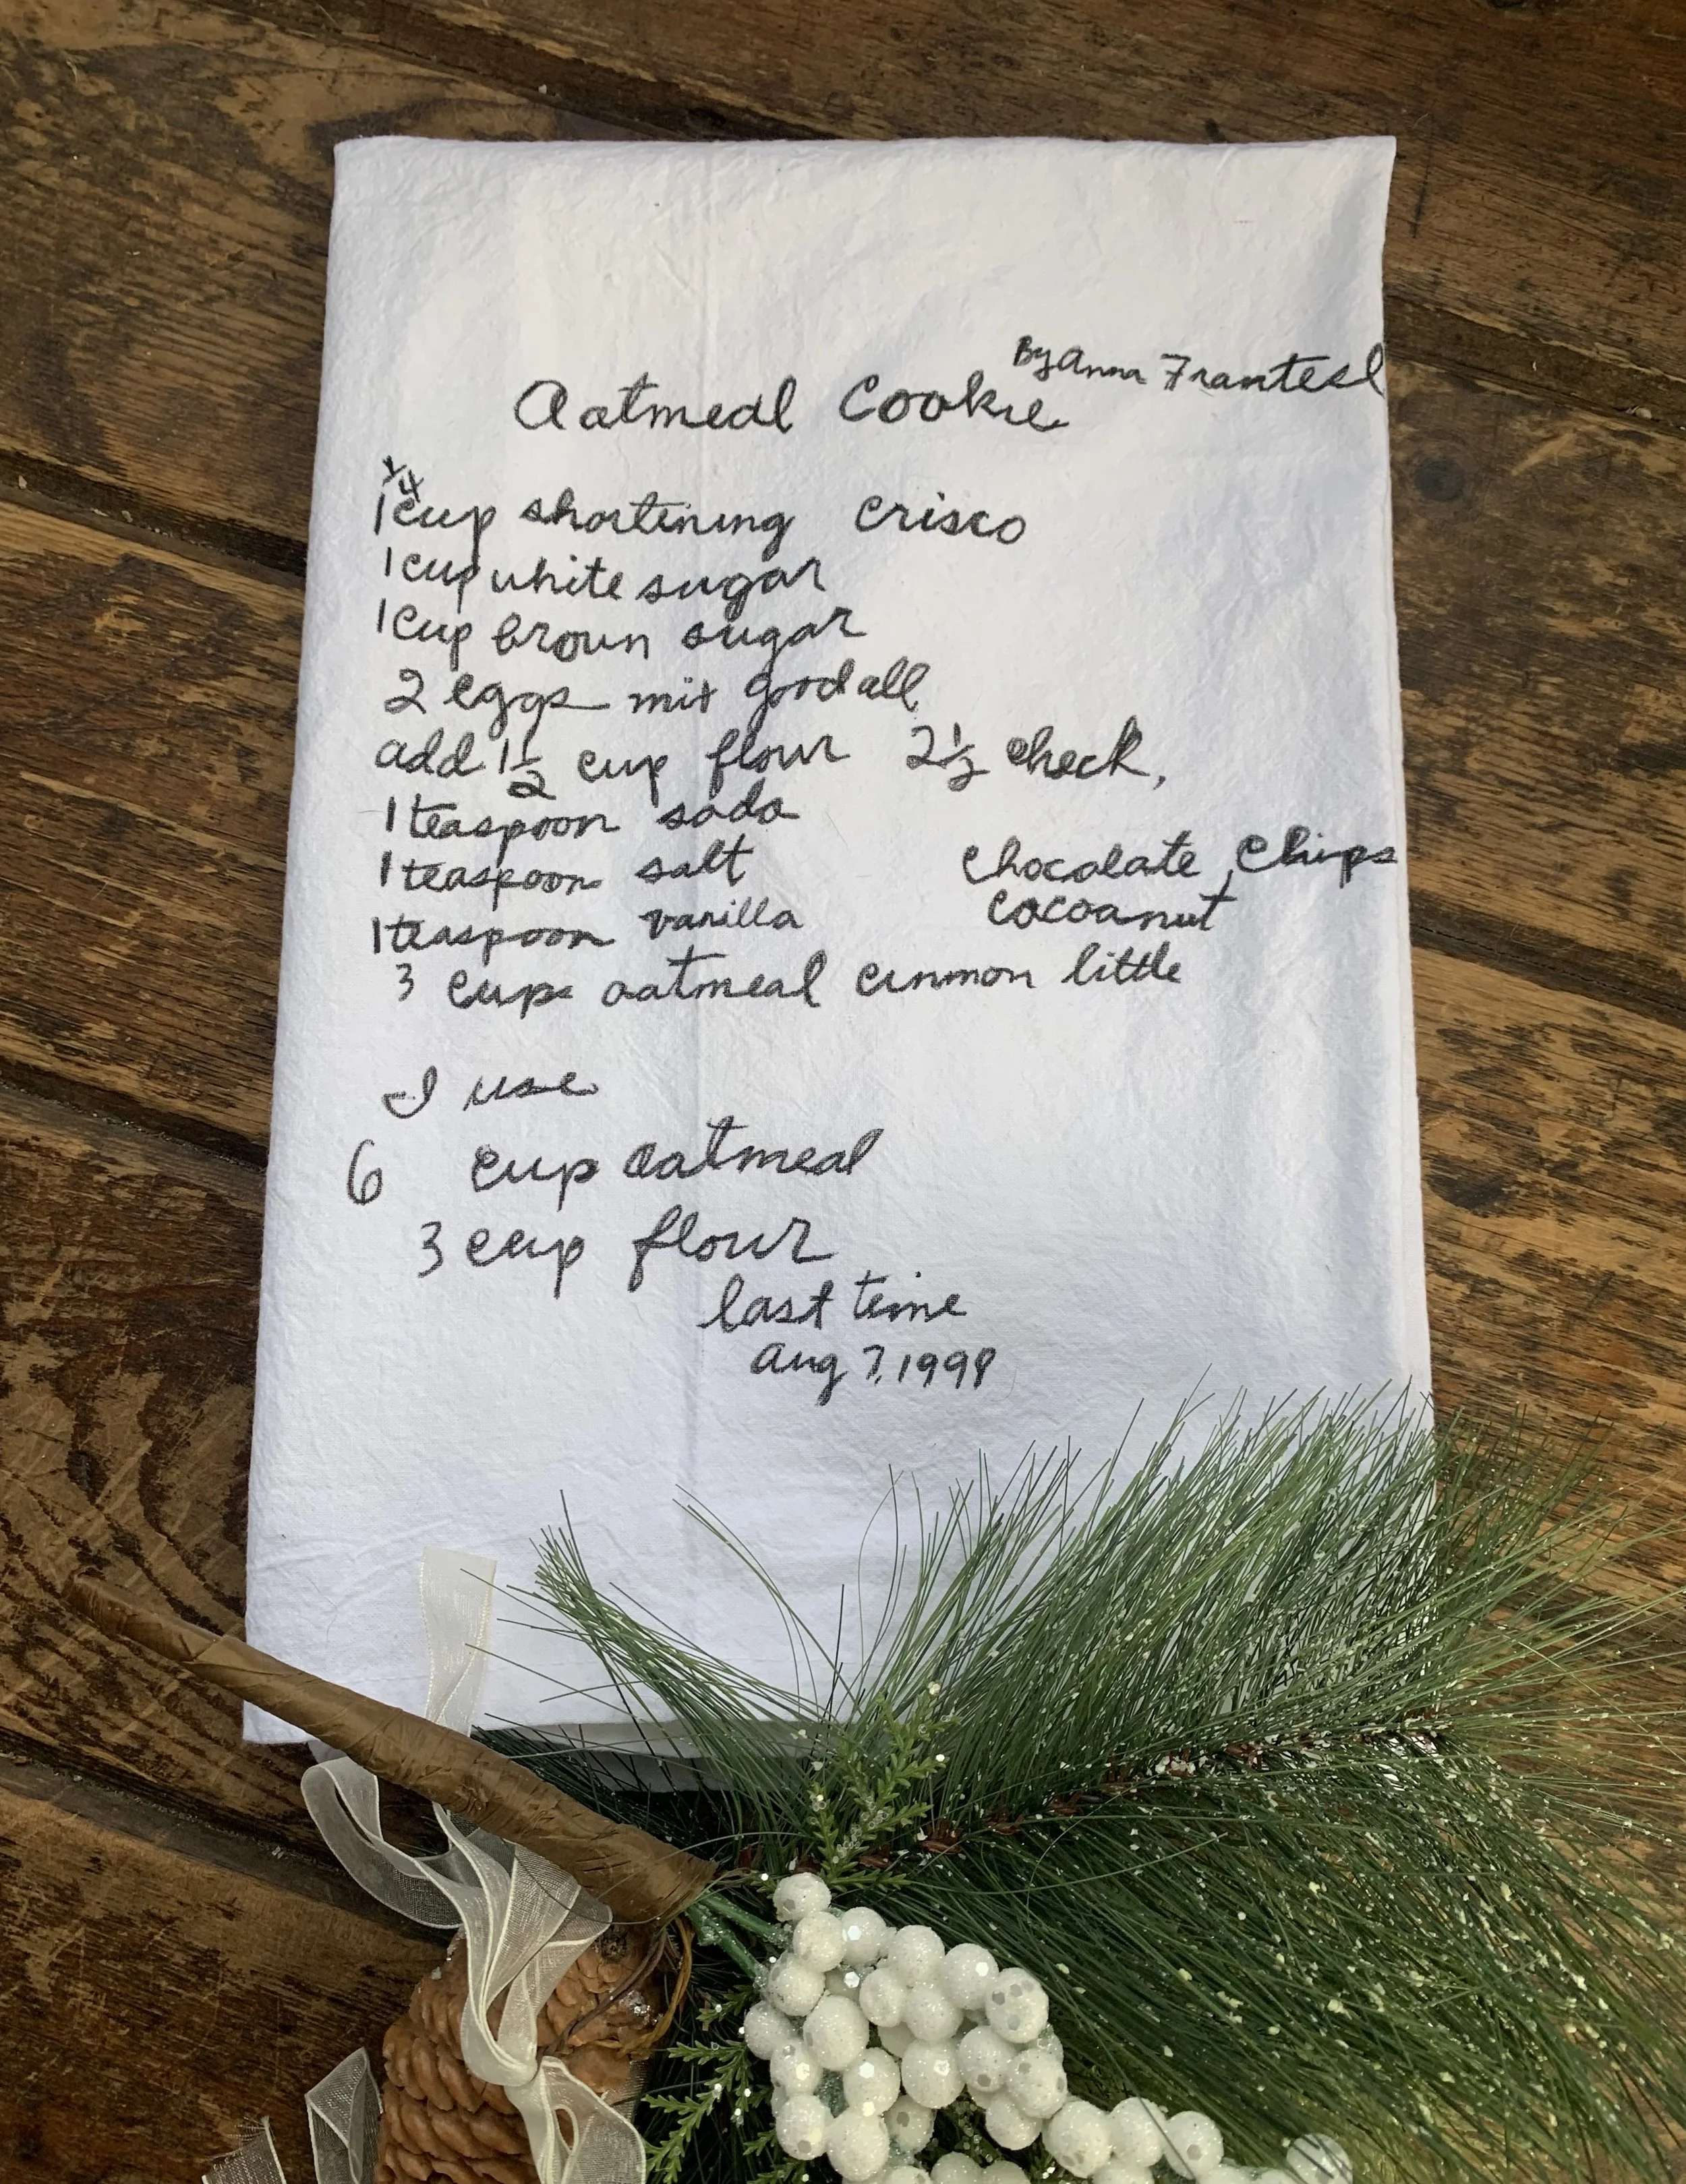 By Anna Frantesl
Oatmeal Cookie
1 1/4 cup shortening Crisco
1 cup white sugar
1 cup brown sugar
2 eggs mix good all
add 1 1/2 cup flour 2 1/2 check,
1 teaspoon soda
1 teaspoon salt chocalate chips
1 teaspoon vanilla cocoanut
3 cups oatmeal cinmon little
I use
6 cup oatmeal
3 cup flour
last time
Aug 7, 1998